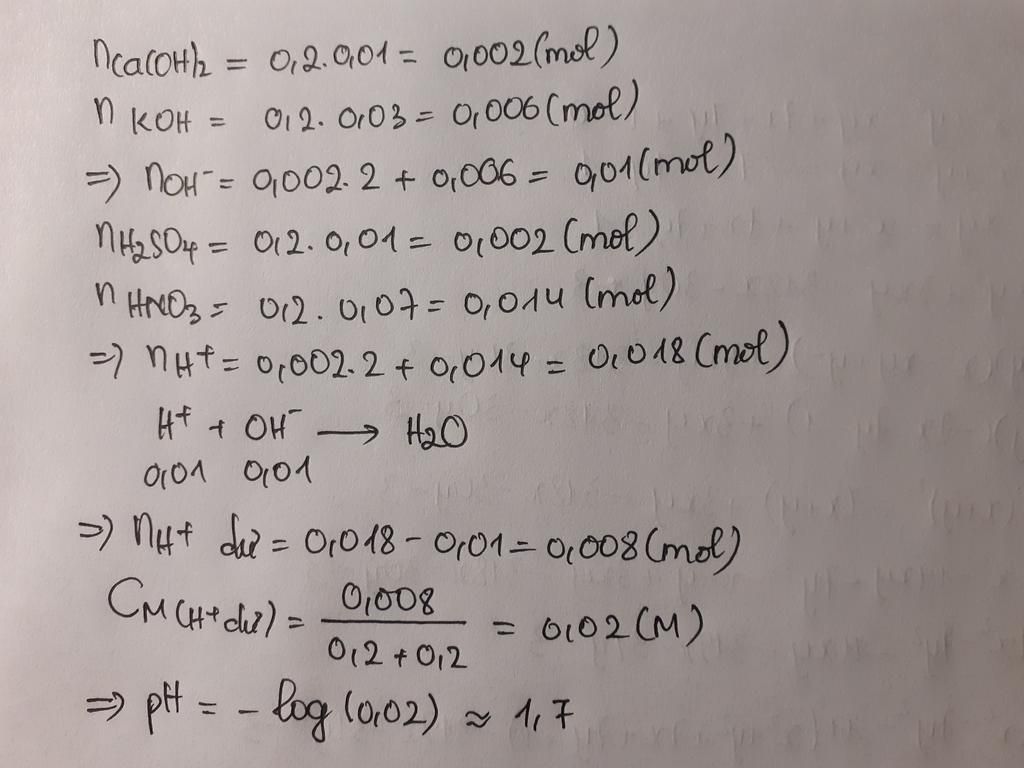 nCa(OH)2 = 0,2.0,01 = 0,002 (mol)
n KOH = 0,2. 0,03 = 0,006 (mol)
=) nOH⁻ = 0,002.2 + 0,006 = 0,01 (mol)
nH2SO4 = 0,2. 0,01 = 0,002 (mol)
n HNO3 = 0,2. 0,07 = 0,014 (mol)
=) nH+ = 0,002.2 + 0,014 = 0,018 (mol)
H+ + OH⁻ ⟶ H2O
0,01 0,01
=) nH+ dư = 0,018 - 0,01 = 0,008 (mol)
CM(H+ dư) = 0,008 / (0,2 + 0,2) = 0,02 (M)
=) pH = - log (0,02) ≈ 1,7